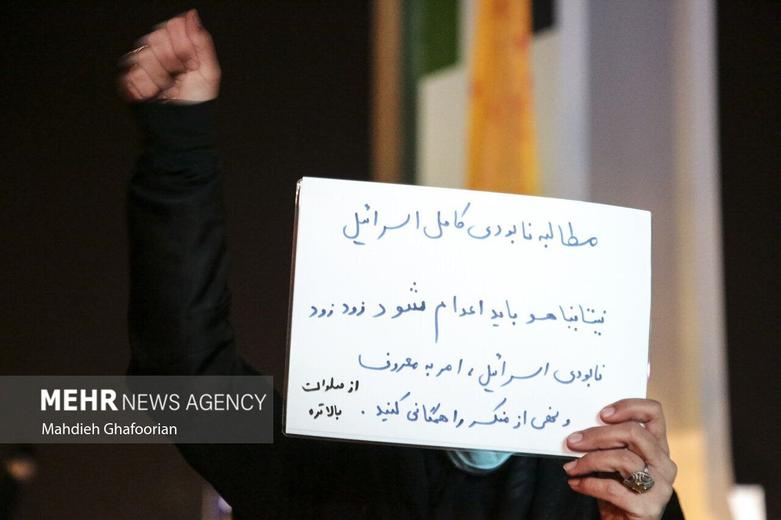 مطالبه نابودی کامل اسرائیل
نیتانیاهو باید اعدام شود زود زود
نابودی اسرائیل، امر به معروف
و نهی از منکر را همگانی کنید.
از صلوات
بالاتره
MEHR NEWS AGENCY
Mahdieh Ghafoorian